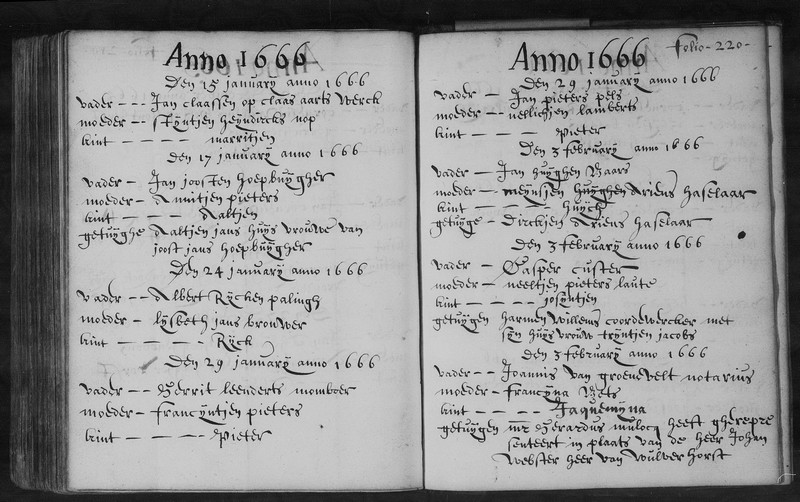 Anno 1666
Den 15 january anno 1666
vader - - - Jan claassen op claas aarts werck
moeder - - styntjen heyndircks nop
kint - - - - marritjen
den 17 january anno 1666
vader - Jan joosten hoepbuygher
moeder - Annitjen pieters
kint - - - - Aaltjen
getuyghe Aaltjen jans huys vrouwe van
joost jans hoepbuygher
Den 24 january anno 1666
vader - - Albert Rycken palingh
moeder - lysbeth jans brouwer
kint - - - - Ryck
Den 29 january anno 1666
vader - - Gerrit leenderts momboer
moeder - francyntjen pieters
kint - - - - Pieter
Anno 1666
folio - 220 -
Den 29 january anno 1666
vader - Jan pieters pels
moeder - nellichjen lamberts
kint - - - - Pieter
Den 3 february anno 1666
vader - Jan huyghen Baars
moeder - meynssen huyghen Ariens haselaar
kint - - - - huych
getuyge - Dirckjen Ariens haselaar
Den 3 february anno 1666
vader - Casper custer
moeder - neeltjen pieters laute
kint - - - - josyntjen
getuygen harmen willems coordewercker met
syn huys vrouw tryntjen jacobs
Den 3 february anno 1666
vader - - Joannis van groenevelt notarius
moeder - francyna Bets
kint - - - - - Jaquemyna
getuygen mr Gerardus mulocq heeft gherepre
senteert in plaats van de heer Johan
webster heer van wulver horst